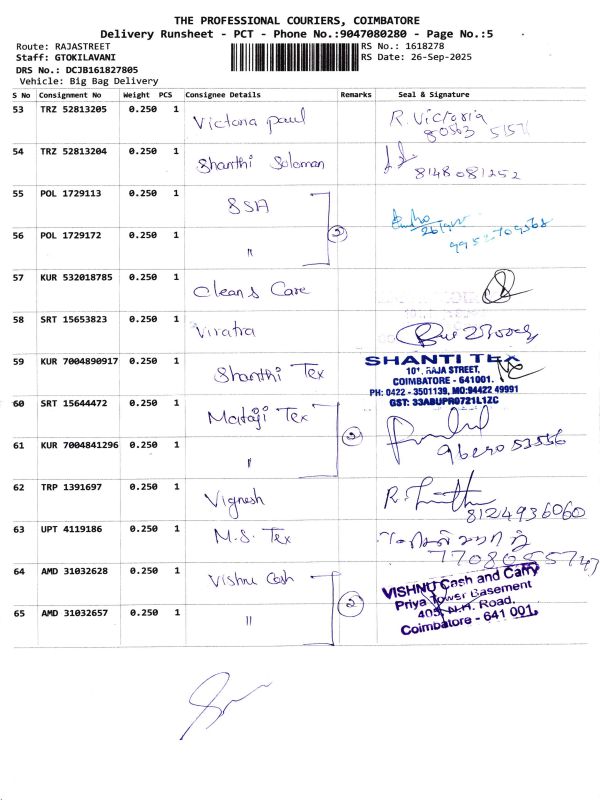 THE PROFESSIONAL COURIERS, COIMBATORE
Delivery Runsheet - PCT - Phone No.:9047080280 - Page No.:5
Route: RAJASTREET RS No.: 1618278
Staff: GTOKILAVANI RS Date: 26-Sep-2025
DRS No.: DCJB161827805
Vehicle: Big Bag Delivery
S No Consignment No Weight PCS Consignee Details Remarks Seal & Signature
53 TRZ 52813205 0.250 1 Victoria paul R. Victoria
80563
54 TRZ 52813204 0.250 1 Shanthi Soloman
8148081252
55 POL 1729113 0.250 1 SSA
2
56 POL 1729172 0.250 1 "
9952709568
57 KUR 532018785 0.250 1 Cleans Care
58 SRT 15653823 0.250 1 Viratra
59 KUR 7004890917 0.250 1 Shanthi Tex SHANTI TEX
101, RAJA STREET,
COIMBATORE - 641001.
PH: 0422 - 3501139, MO:94422 49991
GST: 33ABUPR0721L1ZC
60 SRT 15644472 0.250 1 Mataji Tex
2
61 KUR 7004841296 0.250 1 "
9629053556
62 TRP 1391697 0.250 1 Vignesh
8124936060
63 UPT 4119186 0.250 1 M.S. Tex
7708055747
64 AMD 31032628 0.250 1 Vishnu Cash VISHNU Cash and Carry
2 Priya Tower Basement
65 AMD 31032657 0.250 1 " 405, N.H. Road,
Coimbatore - 641 001.